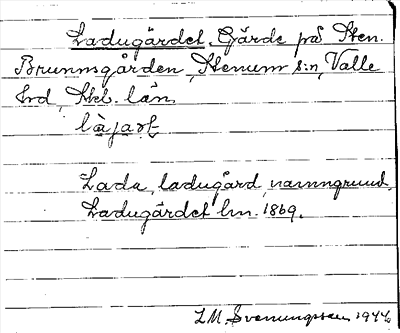 Ladugärdet. Gärde på Sten.
Brunnsgården, Stenum s:n, Valle
hd, Skb. län.
Lada, ladugård, namngrund,
Ladugärdet lm. 1869.
L.M. Svenungsson 1944